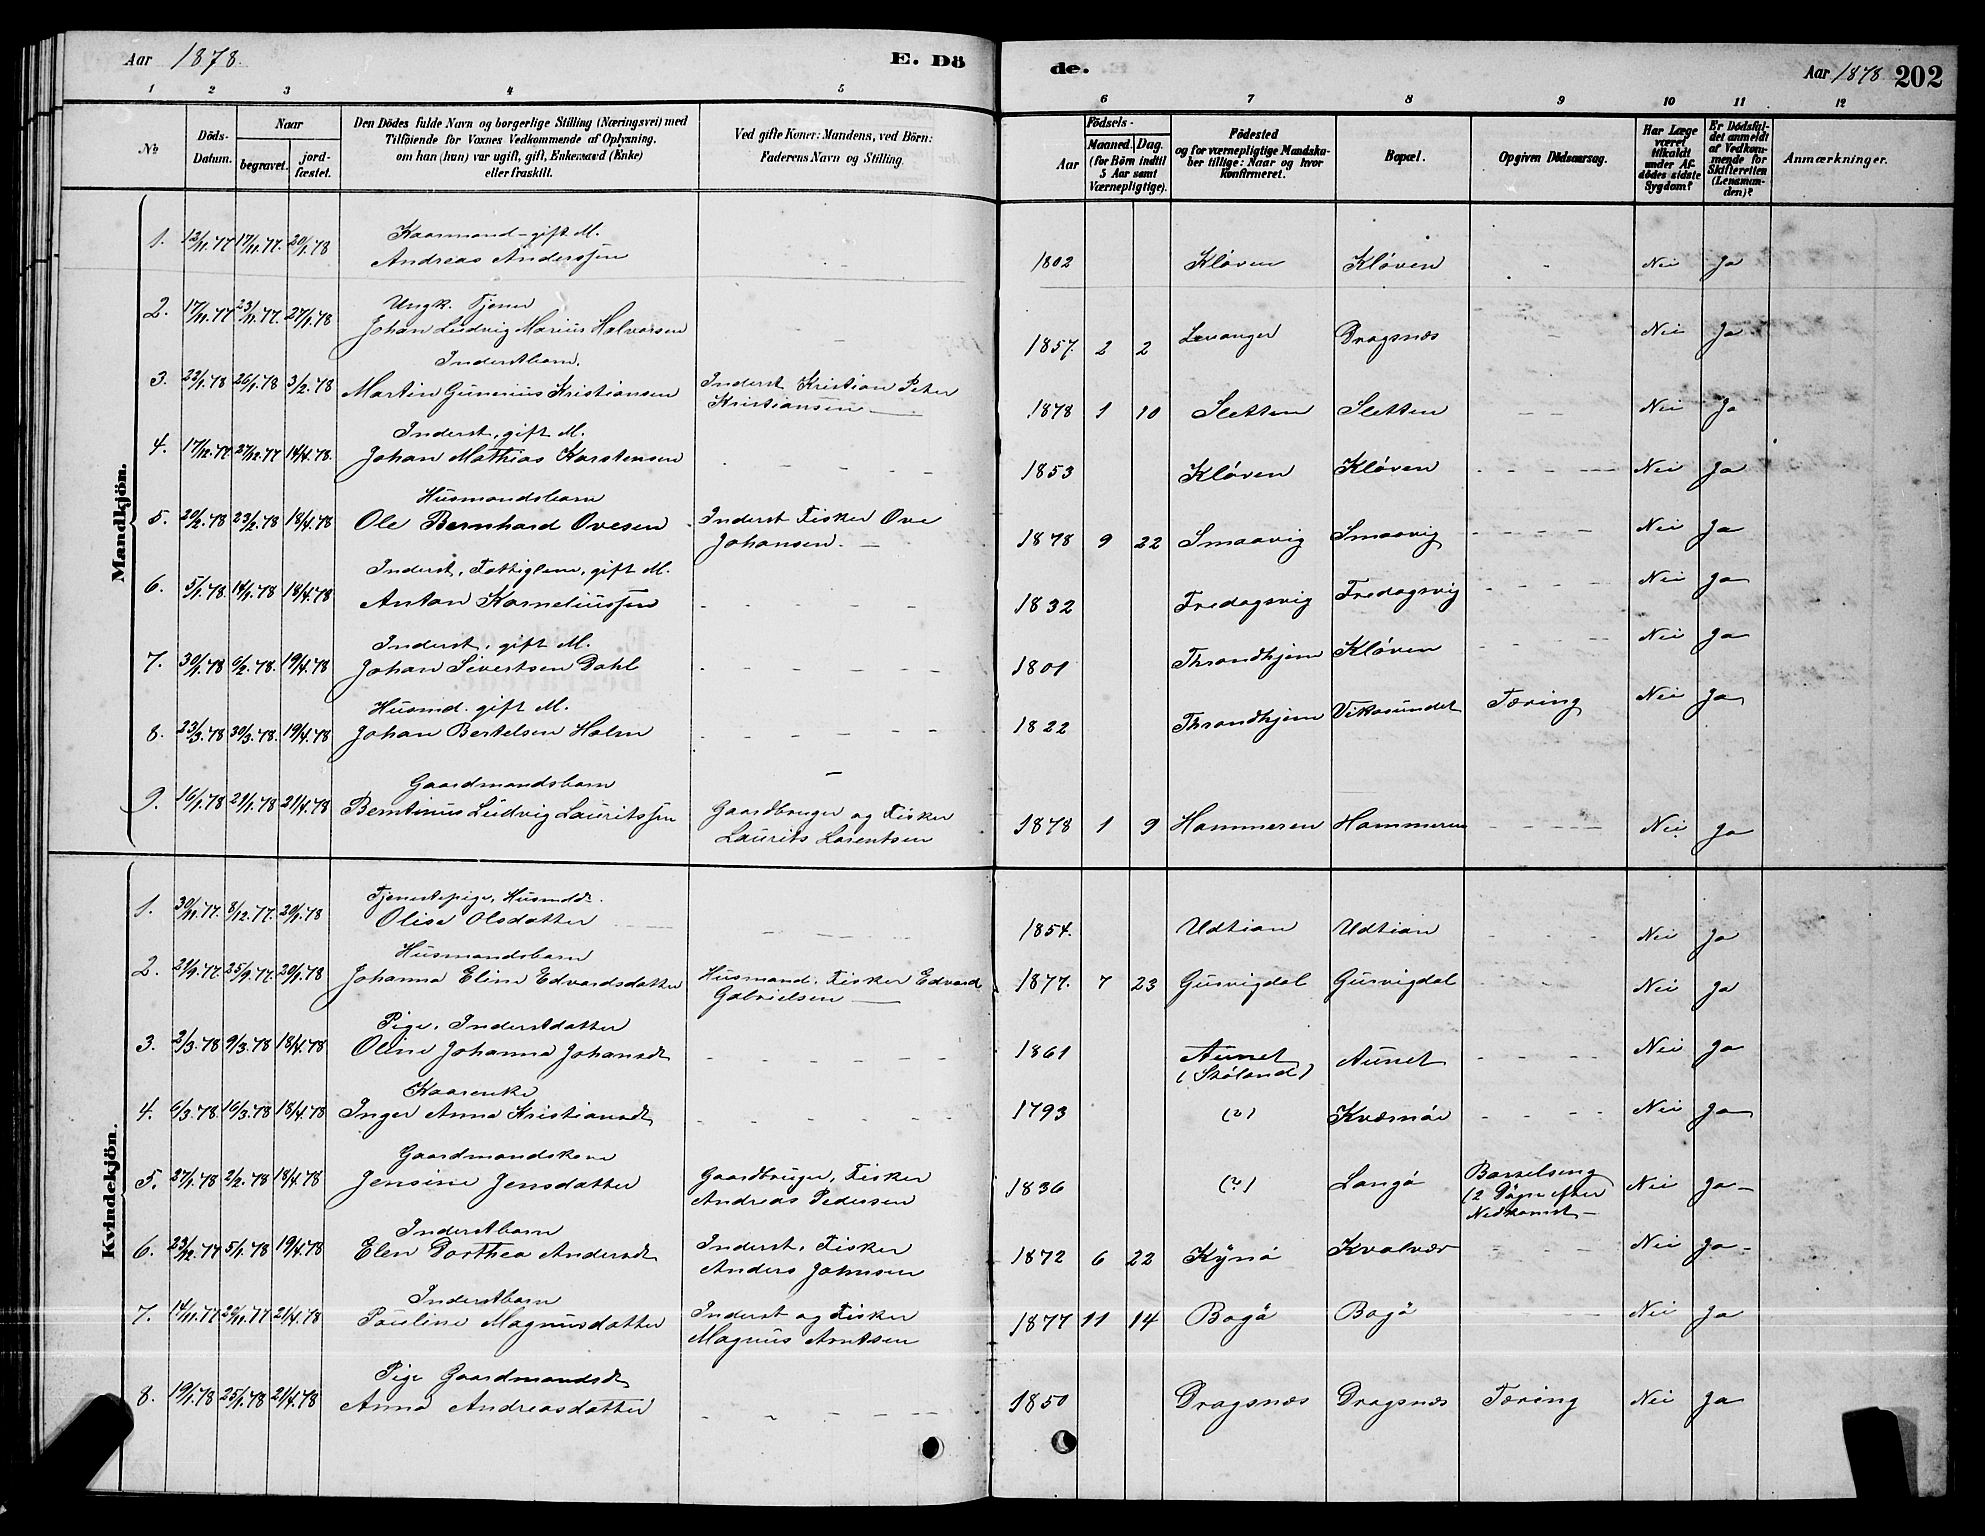 Aar 1878. E. Dö de. Aar 1878 202
1 2 3 4 5 6 7 8 9 10 11 12
No
Döds-Datum.
Naar
begravet.
jord-fæstet.
Den Dödes fulde Navn og borgerlige Stilling (Næringsvei) med
Tilföiende for Voxnes Vedkommende af Oplysning,
om han (hun) var ugift, gift, Enkemand (Enke)
eller fraskilt.
Ved gifte Koner: Mandens, ved Börn:
Faderens Navn og Stilling.
Födsels-
Aar
Maaned. Dag.
(for Börn indtil
5 Aar samt
Værnepligtige).
Födested
og for værnepligtige Mandska-
ber tillige: Naar og hvor
Konfirmeret.
Bopæl.
Opgiven Dödsaarsag.
Har Læge
været
tilkaldt
under Af-
dödes sidste
Sygdom?
Er Dödsfal-
det anmeldt
af Vedkom-
mende for
Skifteretten
(Lensman-
den)?
Anmærkninger.
Mandkjön.
Kaarmand - gift M.
1. 12/11.77 17/11.77. 20/1.78 Andreas Anderssen - 1802 Kløven Kløven - Nei Ja
Ungk. Tjener
2. 17/11.77 23/11.77. 27/1.78 Johan Ludvig Marius Halvorsen - 1857. 2 2 Levanger Dragsnæs Nei Ja
Inderstbarn.
3. 22/1.78 26/1.78 3/2.78 Martin Gunerius Kristiansen Inderst Kristian Peter
Kristiansen 1878 1 10 Sletten Sletten - - Nei Ja
Inderst, gift M.
4. 17/12.77 27/12.77 14/4.78. Johan Mathias Karstensen - - - - 1853 Kløven Kløven - - - Nei Ja
Husmandsbarn
5. 20/2.78 23/2.78 18/4.78 Ole Bernhard Ovesen Inderst Fisker Ove
Johansen. - 1878 9 22 Smaavig Smaavig - - - Nei Ja
Inderst, Fattiglem, gift M.
6. 5/1.78 14/1.78 18/4.78 Anton Korneliussen - - - - 1832 Fredagsvig Fredagsvig - - - Nei Ja
Inderst, gift M.
7. 30/1.78 6/2.78. 19/4.78 Johan Sivertsen Dahl - - - - 1801 Throndhjem Kløven - - Nei Ja
Husmd. gift M.
8. 23/3.78 30/3.78. 19/4.78 Johan Bertelsen Holm - - - - 1822 Throndhjem Vikasundet Tæring Nei Ja
Gaardmandsbarn
9. 16/1.78 21/1.78 21/4.78 Berntinus Ludvig Lauritssen Gaardbruger og Fisker
Laurits Lorentsen 1878 1 9 Hammeren Hammeren - - - Nei Ja
Kvindekjön.
Tjenestepige, Husmdd.
1. 30/11.77. 8/12.77. 20/1.78 Olise Olsdatter - - - 1854. Udtian Udtian - - - Nei Ja
Husmandsbarn
2. 21/9.77. 25/9.77. 20/1.78 Johanna Elise Edvardsdatter Husmand, Fisker Edvard
Gabrielsen - 1877. 7 23 Gusvigdal Gusvigdal - Nei Ja
Pige, Inderstdatter
3. 2/3.78 9/3.78 18/4.78 Oline Johanna Johansd - - - - 1861 Aunet
(Støland) Aunet - - - Nei Ja
Kaarenke
4. 6/3.78 16/3.78 18/4.78 Inger Anna Kristiansd - - - - 1793 (?) Kværnøe - - - Nei Ja
Gaardmandskone
5. 27/1.78 2/2.78 18/4.78 Jensine Jensdatter Gaardbruger, Fisker
Andreas Pedersen 1836 (?) Langø Barselseng
(2 Døgn efter
Nedkomst - Nei Ja -
Inderstbarn
6. 23/12.77 5/1.78 19/4.78 Elen Dorthea Andersd Inderst, Fisker
Anders Johnsen 1872 6 22 Kynø Kvalvær - - - Nei Ja -
Inderstbarn
7. 14/11.77 20/11.77 21/4.78 Pauline Magnusdatter Inderst og Fisker
Magnus Arntsen 1877 11 14 Bogø Bogø - - Nei Ja
Pige Gaardmandsd
8. 19/1.78 25/1.78 21/4.78 Anna Andreasdatter - - - - 1850 Dragsnæs Dragsnæs Tæring Nei Ja